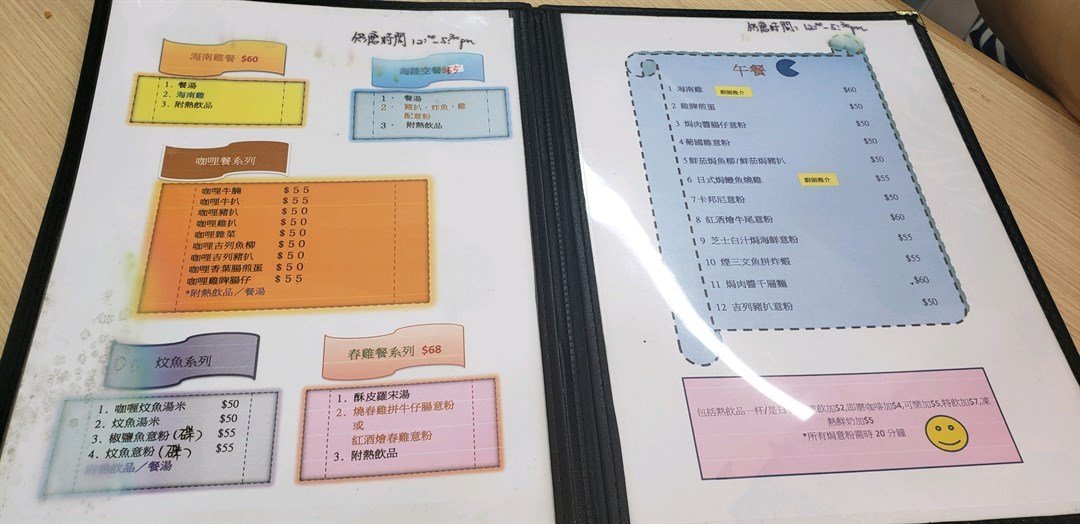 供應時間 12:00-5:30pm
海南雞餐 $60
1. 餐湯
2. 海南雞
3. 附熱飲品
海陸空餐
1. 餐湯
2. 豬扒,炸魚,雞
配意粉
3. 附熱飲品
咖哩餐系列
咖哩牛腩 $55
咖哩牛扒 $55
咖哩豬扒 $50
咖哩雞扒 $50
咖哩雜菜 $50
咖哩吉列魚柳 $50
咖哩吉列豬扒 $50
咖哩香葉腸煎蛋 $50
咖哩雞髀腸仔 $55
*附熱飲品/餐湯
炆魚系列
1. 咖哩炆魚湯米 $50
2. 炆魚湯米 $50
3. 椒鹽魚意粉(碟) $55
4. 炆魚意粉(碟) $55
附熱飲品/餐湯
春雞餐系列 $68
1. 酥皮羅宋湯
2. 燒春雞拼牛仔腸意粉
或
紅酒燴春雞意粉
3. 附熱飲品
供應時間: 12:00-5:30pm
午餐
1 海南雞 廚師推介 $60
2 雞髀煎蛋 $50
3 焗肉醬腸仔意粉 $50
4 葡國雞意粉 $50
5 鮮茄焗魚柳/鮮茄焗豬扒 $50
6 日式焗鰻魚燒雞 廚師推介 $55
7 卡邦尼意粉 $50
8 紅酒燴牛尾意粉 $60
9 芝士白汁焗海鮮意粉 $55
10 煙三文魚拼炸蝦 $55
11 焗肉醬千層麵 $60
12 吉列豬扒意粉 $50
包括熱飲品一杯/是日 凍飲加$2,即磨咖啡加$4,可樂加$5,特飲加$7,凍
熱鮮奶加$5
*所有焗意粉需時 20 分鐘